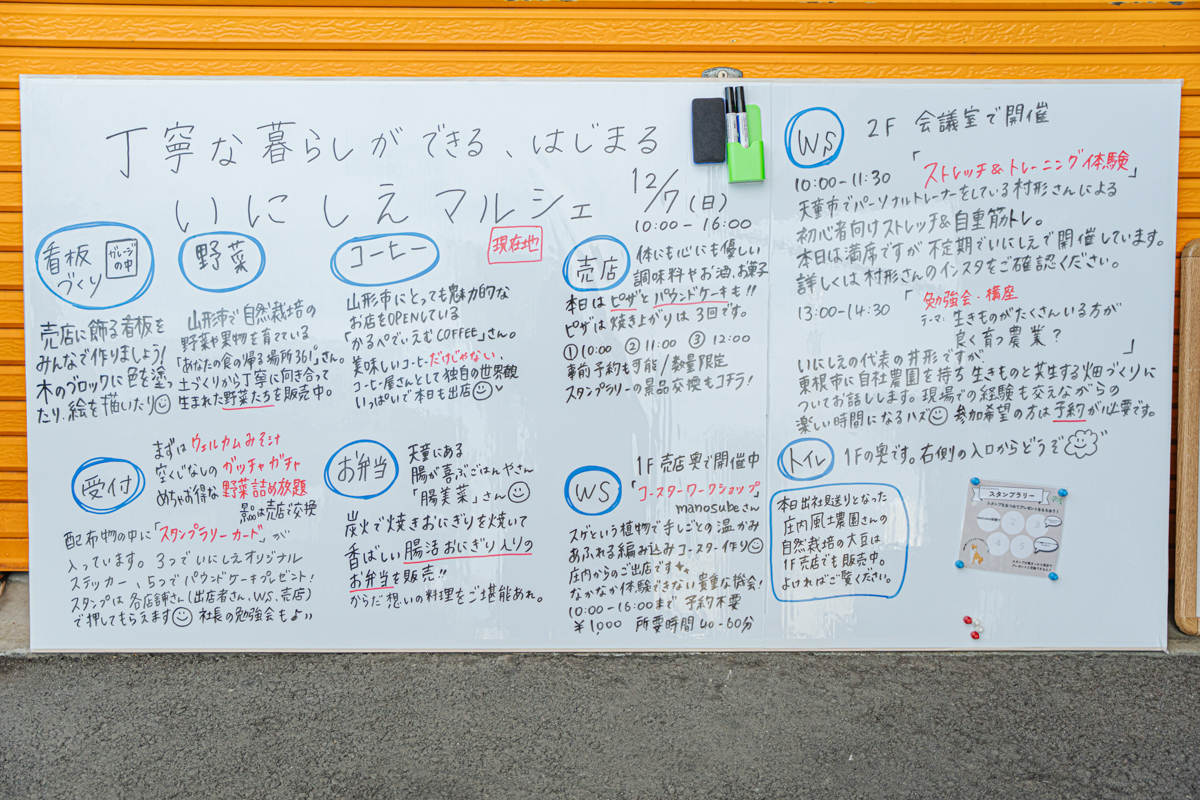 丁寧な暮らしができる、はじまる
いにしえマルシェ
12/7(日)
10:00-16:00
看板づくり
ガレージの中
売店に飾る看板を
みんなで作りましょう!
木のブロックに色を塗っ
たり、絵を描いたり
野菜
山形市で自然栽培の
野菜や果物を育てている
「あなたの食の帰る場所361°」さん。
土づくりから丁寧に向き合って
生まれた野菜たちを販売中。
コーヒー
山形市にとっても魅力的な
お店をOPENしている
「かるぺでぃえむCOFFEE」さん。
美味しいコーヒーだけじゃない、
コーヒー屋さんとして独自の世界観
いっぱいで本日も出店
現在地
売店
体にも心にも優しい
調味料やお酒、お菓子
本日はピザとパウンドケーキも!!
ピザは焼き上がりは3回です。
①10:00 ②11:00 ③12:00
事前予約も可能/数量限定
スタンプラリーの景品交換もコチラ!
受付
まずはウェルカムみそ汁
空くじなしのガッチャガチャ
めちゃお得な野菜詰め放題
景品は売店で交換
配布物の中に「スタンプラリーカード」が
入っています。3つでいにしえオリジナル
ステッカー、5つでパウンドケーキプレゼント!
スタンプは各店舗さん(出店者さん、WS、売店)
で押してもらえます 社長の勉強会もよ
お弁当
天童にある
腸が喜ぶごはんやさん
「腸美菜」さん
炭火で焼きおにぎりを焼いて
香ばしい腸活おにぎり入りの
お弁当を販売!!
からだ想いの料理をご堪能あれ。
WS
1F売店奥で開催中
「コースターワークショップ」
manosubeさん
スゲという植物で手しごとの温かみ
あふれる編み込みコースター作り
庄内からのご出店です
なかなか体験できない貴重な機会!
10:00-16:00まで 予約不要
¥1,000 所要時間40-60分
WS
2F 会議室で開催
10:00-11:30 「ストレッチ&トレーニング体験」
天童市でパーソナルトレーナーをしている村形さんによる
初心者向けストレッチ&自重筋トレ。
本日は満席ですが不定期でいにしえで開催しています。
詳しくは村形さんのインスタをご確認ください。
13:00-14:30 「勉強会・講座
テーマ:生きものがたくさんいる方が
良く育つ農業?」
いにしえの代表の井形ですが、
東根市に自社農園を持ち生きものと共生する畑づくりに
ついてお話しします。現場での経験も交えながらの
楽しい時間になるハズ 参加希望の方は予約が必要です。
トイレ
1Fの奥です。右側の入口からどうぞ
本日出社見送りとなった
庄内風土農園さんの
自然栽培の大豆は
1F売店でも販売中。
よければご覧ください。
スタンプラリー